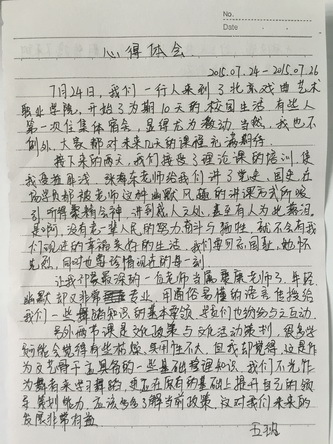 No.
Date
心得体会
2015.07.24-2015.07.26
7月24日,我们一行人来到了北京戏曲艺术
职业学院,开始了为期10天的校园生活,有些人
第一次住集体宿舍,显得尤为激动,当然,我也不
例外,大家都对未来几天的课程充满期待。
接下来的两天,我们接受了理论课的培训,使
我受益匪浅,老师给我们讲了党史、国史,在
场学员都被老师这种幽默风趣的讲课方式所吸
引,听得聚精会神,讲到感人之处,甚至有人为此落泪。
是啊,没有老一辈人民的努力奋斗与牺牲,就不会有我
们现在的幸福美好的生活,我们要勿忘国耻,缅怀
先烈,同时也要珍惜现在的每一刻。
让我印象最深的一位老师当属老师了,年轻
幽默却又非常专业,用通俗易懂的语言传授给
我们一些舞蹈知识的基本掌领,是我们也纷纷与之互动。
另外两节课是文化政策与文化活动策划,很多学
员可能会觉得有些枯燥,实用性不大,但我却觉得,这是作
为文艺骨干应具备的一些基础理论知识,我们不光作
为舞者来学习舞蹈,更应在原有的基础上提升自己的领
导策划能力,应该多多了解当前政策,这对我们未来的
发展非常有益。
五班